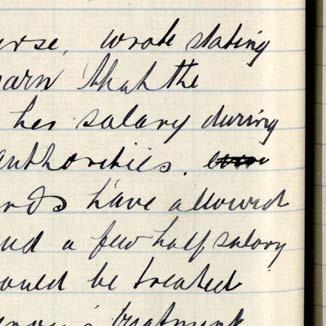 erse, wrote stating
earn that the
her salary during
authorities.
ards have allowed
and a few half salary
ould be treated
treatment